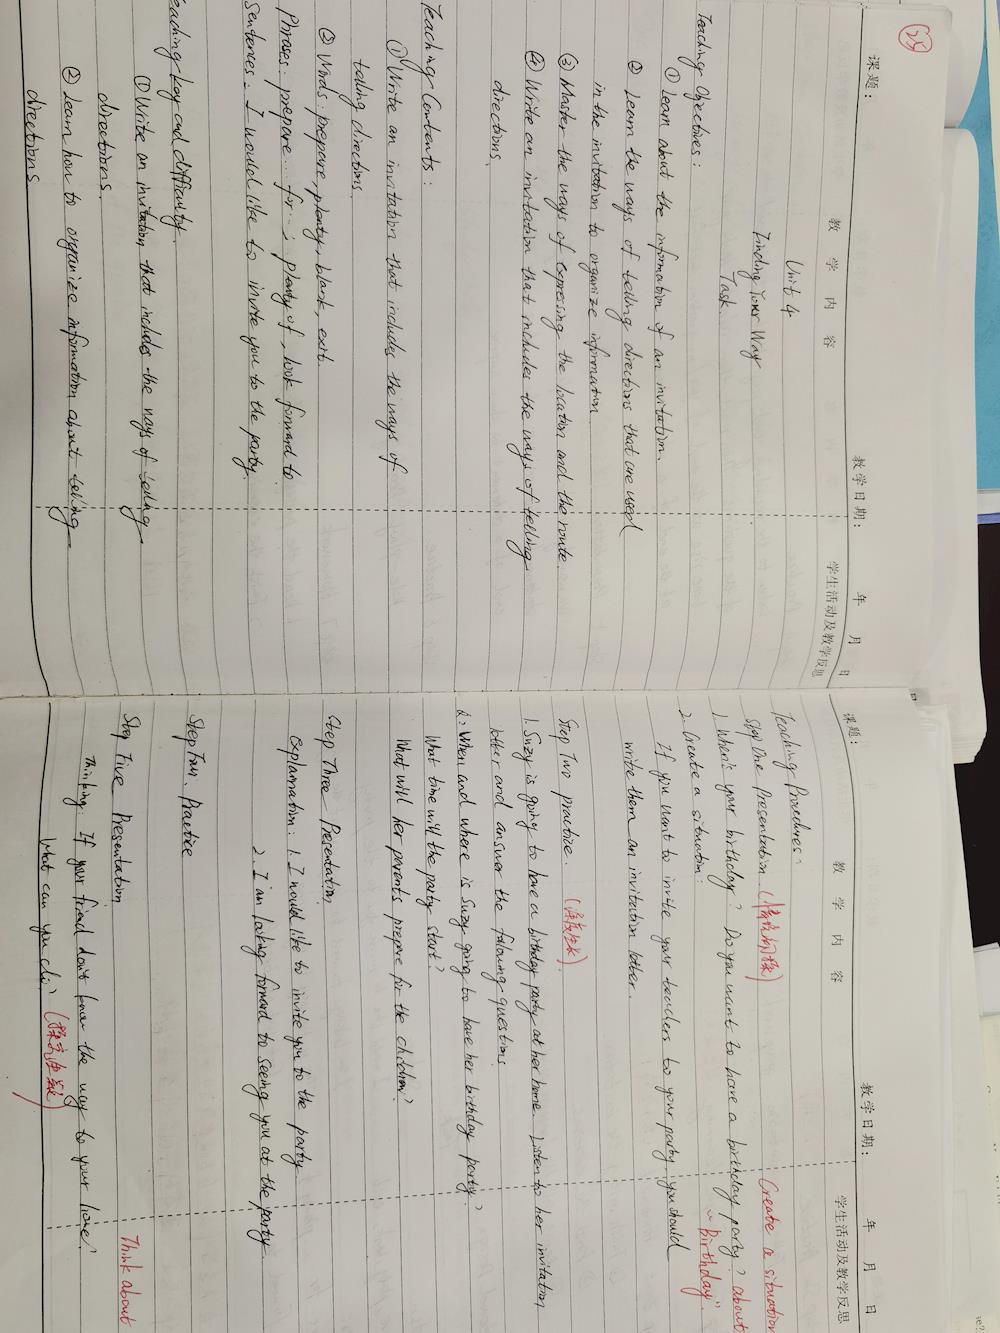 25
课题：
教 学 内 容
教学日期： 年 月 日
学生活动及教学反思
Unit 4
Finding Your Way
Task
Teaching Objectives:
① Learn about the information of an invitation.
② Learn the ways of telling directions that are used
in the invitation to organize information
③ Master the ways of expressing the location and the route
④ Write an invitation that includes the ways of telling
directions.
Teaching Contents:
① Write an invitation that includes the ways of
telling directions.
② Words: prepare, plenty, exit.
Phrases: prepare... for...; plenty of, look forward to
Sentences: I would like to invite you to the party.
eaching key and difficulty.
① Write an invitation that includes the ways of telling
directions.
② Learn how to organize information about telling
directions
课题：
教 学 内 容
教学日期： 年 月 日
学生活动及教学反思
Teaching Procedures:
Step One Presentation
1. When's your birthday? Do you want to have a birthday party?
Create a situation
about
"Birthday"
2. Create a situation:
If you want to invite your teachers to your party, you should
write them an invitation letter.
Step Two practice.
1. Suzy is going to have a birthday party at her home. Listen to her invitation
letter and answer the following questions
When and where is Suzy going to have her birthday party?
What time will the party start?
What will her parents prepare for the children?
Step Three Presentation
explanation: 1. I would like to invite you to the party
2. I am looking forward to seeing you at the party.
Step Four. Practice
Step Five Presentation
Think about
Thinking: If your friend don't know the way to your home?
What can you do?